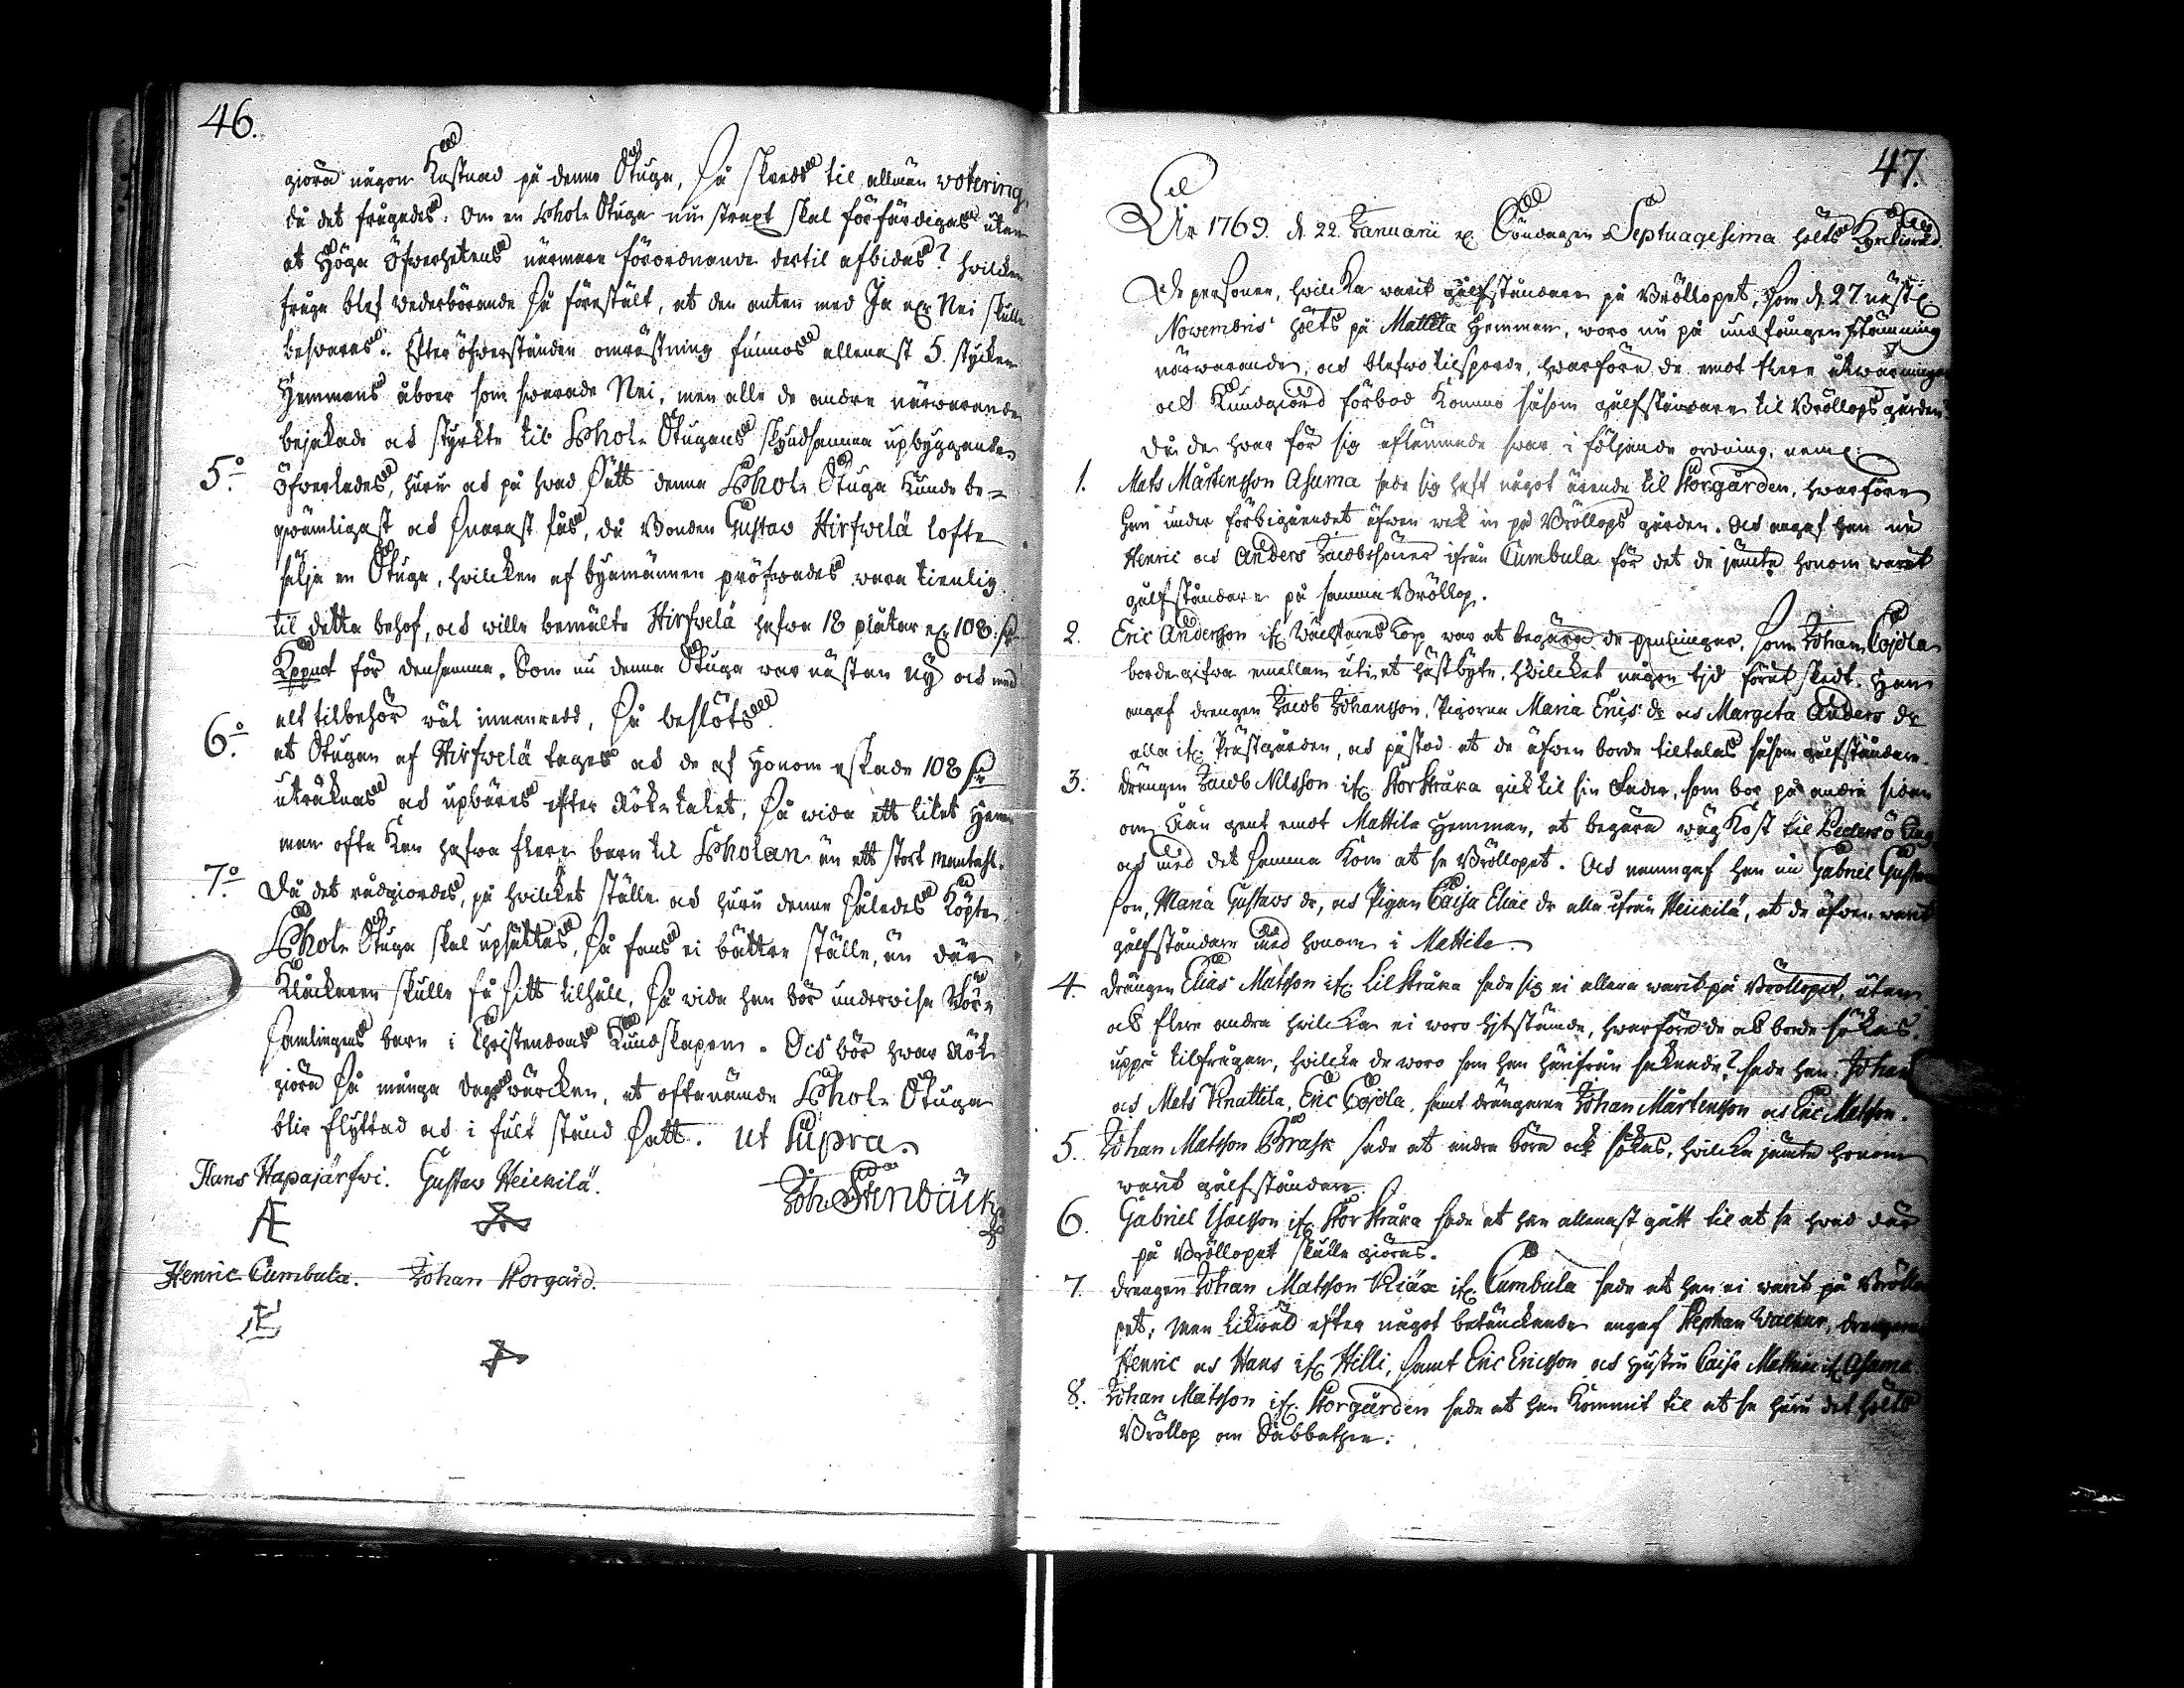 46.
giöra någon Kostnad på denne Stuga, Så skreds til allmän votering,
då det frågades: Om en Schole Stuga nu straxt skal förfärdigas utan
at Höga Öfwerhetens närmare förordnande dertil afbidas? hvilcken
fråga blef vederbörande Så förestält, at den anten med Ja eller Nei skulle
beswaras. Efter öfwerstånden omröstning funnos allenast 5. stycken
Hemmans åboer som swarade Nei, men alle de andre närwarande
bejakade och styrkte til Schole Stugans skyndsamma upbyggande.
5:o Öfwerlades, huru och på hwad Sätt denna Schole Stuga kunde be-
qwämligast och Snarast fås, då Bonden Gustav Hirfwelä lofte
sälja en Stuga, hvilcken af byamännen pröfwades vara tienlig
til detta behof, och wille bemälte Hirfwelä hafwa 18 plåtar eller 108
Koppmt för densamma. Som nu denna Stuga war nästan Ny och med
alt tilbehör wäl innanredd, Så beslöts
6:o at Stugan af Hirfwelä tages och de af Honom eskade 108
uträknas och upbäres efter Röketalet, Så wida ett litet Hem-
man ofta kan hafwa flere barn til Scholan än ett stort Mantahl.
7:o Då det rådgiordes, på hvilcket ställe och huru denne Således Köpte
Schole Stuga skal upsättas, Så fans ei bättre ställe, än där
Klockaren skulle få Sitt tilhåll, Så vida han bör underwisa För-
samlingens barn i Christendoms Kundskapen. Och bör hwar Rök
giöra Så många dagswärcken, at oftanämde Schole Stuga
blir flyttad och i fult stånd Satt. ut Supra.
Hans Hapajärfwi. Gustav Heickilä. Joh: Stenbäck
Henric Cumbula. Johan Storgård.
47.
År 1769. d. 22. Januarii eller Söndagen Septuagesima höls Kyrckioråd.
De personer, hvilcka warit gålfståndare på Bröllopet, Som d. 27. näst:
Novembris hölts på Mattila Hemman, woro nu på undfången stämning
närwarande, och blefwo tilsporde, hwarföre de emot flere åtwarningar
och Kundgiord förbod Kommo såsom gålfståndare til Bröllops gården
då de hwar för sig aflämnade swar i följande ordning, neml:
1. Mats Mårtensson Asuma sade sig haft något ärende til Storgården, hwarföre
Han under förbigåendet äfwen wek in på Bröllops gården. Och angaf han nu
Henric och Anders Jacobssöner ifrån Cumbula för det de jämte honom warit
gålfståndare på samma Bröllop.
2. Eric Andersson if. Wäckares Torp war at begära de penningar, Som Johan Cojola
borde gifwa emellan uti et hästbyte, hvilcket någon tid förut skedt. Han
angaf drengen Jacob Johansson, Pigorna Maria Erics dr och Margeta Anders dr
alla if. Prästgården, och påstod at de äfwen borde tiltalas såsom gålfståndare.
3. Drängen Jacob Nilsson if. Storstråka gick til sin Fader, som bor på andra sidan
om Åån gent emot Mattila Hemman, at begära wäg Kost til Pedersö
och med det Samma Kom at se Bröllopet. Och namngaf han nu Gabriel Gustavs-
son, Maria Gustavs dr, och Pigan Caisa Eliæ dr alla ifrån Heickilä, at de äfwen warit
gålfståndare med honom i Mattila.
4. Drängen Elias Matsson if. Lilstråka sade sig ei allena warit på Bröllopet, utan
och flere andra hvilcka ei woro hitstämde, hwarföre de ock borde sökas.
uppå tilfrågan, hvilcka de woro som han härifrån saknade? sade han: Johan
och Mats Knuttila, Eric Cojola, samt drängarne Johan Mårtensson och Eric Matsson.
5. Johan Matsson Brask sade at andra böra ock sökas, hvilcka jämte honom
warit gålfståndare.
6. Gabriel Isacsson if. Storstråka sade at han allenast gått til at se hwad där
på Bröllopet skulle giöras.
7. Drengen Johan Matsson Kiäx if. Cumbula sade at han ei warit på Bröllo-
pet, Men likwäl efter något betänckande angaf Stephan Wacker, Drengarne
Henric och Hans if. Hilli, Samt Eric Ericsson och Hustru Caisa if. Asuma
8. Johan Matsson if. Storgården sade at han Kommit til at se huru det höls
Bröllop om Sabbathen.